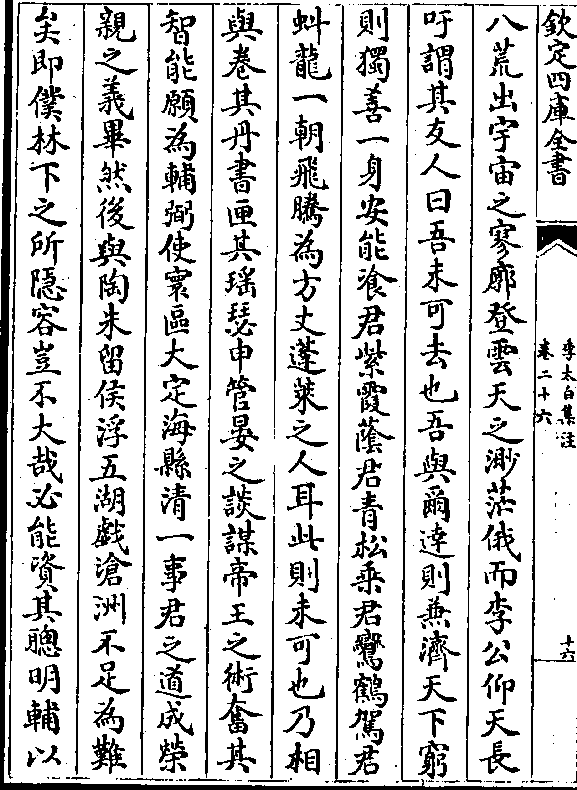 欽定四庫全書
李太白集注
卷二十六
十六
八荒出宇宙之寥廓登雲天之渺茫俄而李公仰天長
吁謂其友人曰吾未可去也吾與爾達則兼濟天下窮
則獨善一身安能飡君紫霞蔭君青松乘君鸞鶴駕君
虬龍一朝飛騰為方丈蓬萊之人耳此則未可也乃相
與卷其丹書匣其瑶瑟申管晏之談謀帝王之術奮其
智能願為輔弼使寰區大定海縣清一事君之道成榮
親之義畢然後與陶朱留侯浮五湖戲滄洲不足為難
矣即僕林下之所隱容豈不大哉必能資其聰明輔以